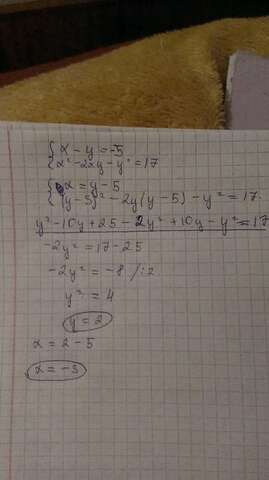 x - y = -5
x² - 2xy - y² = 17
x = y - 5
(y - 5)² - 2y(y - 5) - y² = 17
y² - 10y + 25 - 2y² + 10y - y² = 17
-2y² = 17 - 25
-2y² = -8 /:2
y² = 4
y = 2
x = 2 - 5
x = -3